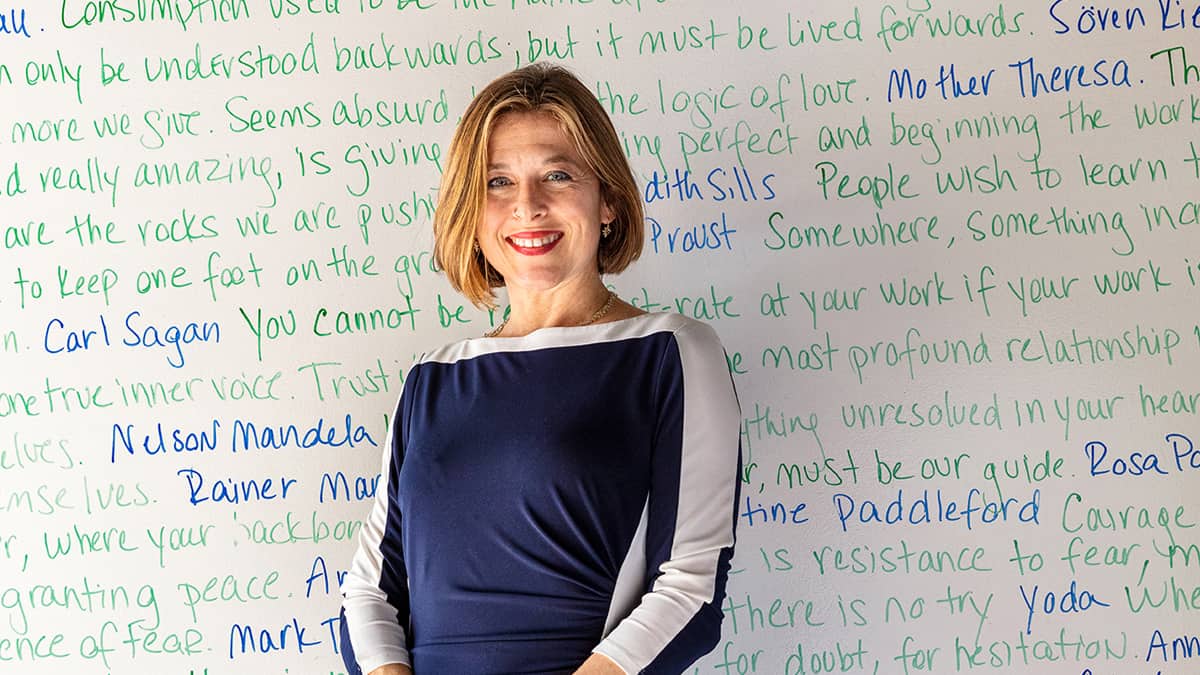 Consumption used to be the name Sören Kie
only be understood backwards; but it must be lived forwards.
more we give. Seems absurd, the logic of love. Mother Theresa. Th
really amazing, is giving ing perfect and beginning the work
are the rocks we are pushi dith Sills People wish to learn t
to keep one foot on the gro Proust Somewhere, something inc
n. Carl Sagan You cannot be st-rate at your work if your work i
one true inner voice. Trust most profound relationship
elves. Nelson Mandela ything unresolved in your hear
emselves. Rainer Mar r, must be our guide. Rosa Pa
r, where your backbon tine Paddleford Courage
granting peace. An is resistance to fear, m
ence of fear. Mark T there is no try Yoda Whe
for doubt, for hesitation. Ann